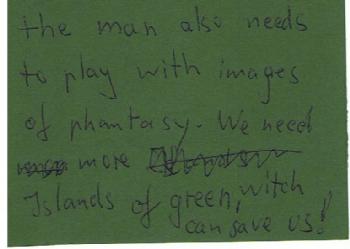 the man also needs
to play with images
of phantasy. We need
more
Islands of green, witch
can save us!